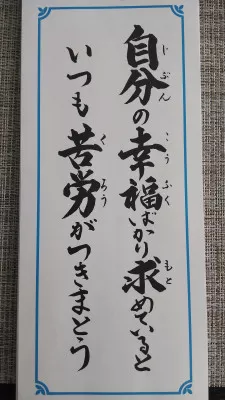 自分の幸福ばかり求めていると
いつも苦労がつきまとう